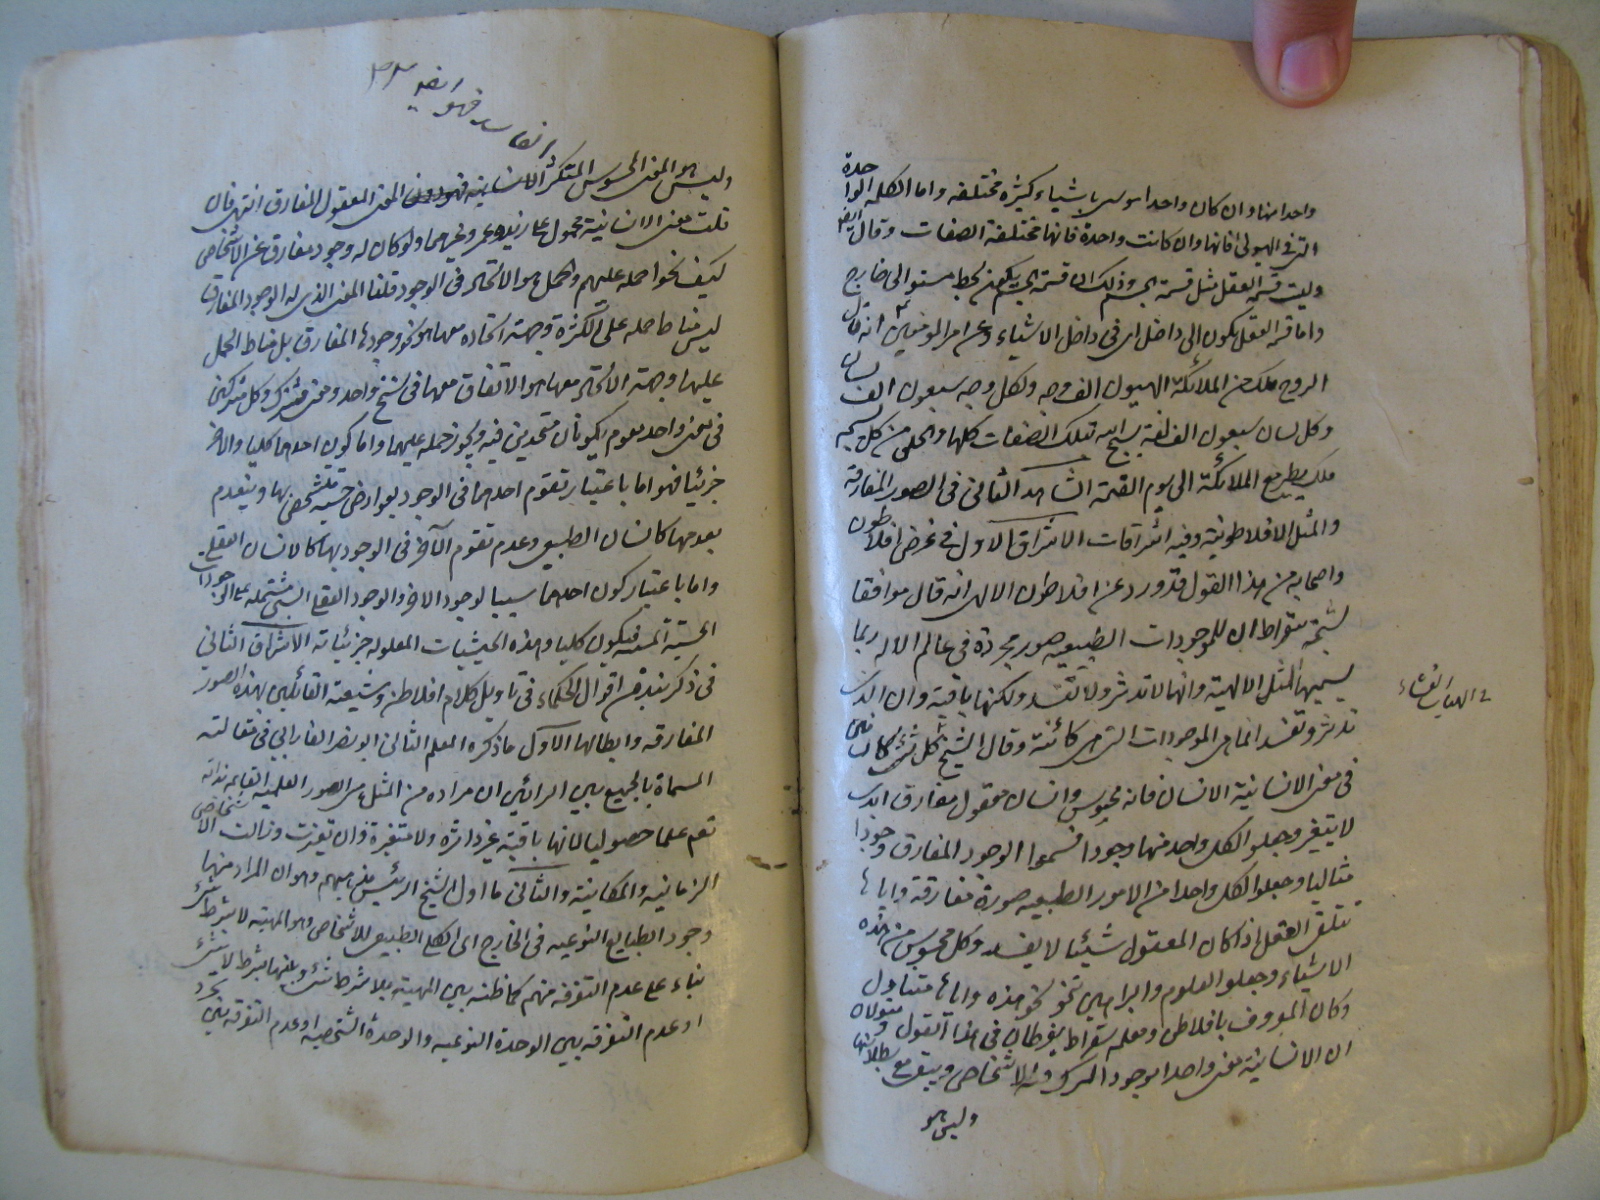 واحدا منها وان كان واحدا هو س باشياء كثيرة مختلفة واما الكلمة الواحدة
التى فى الهيولى فانها وان كانت واحدة فانها مختلفة الصفات وقال ايضا
وليت قسمة العقل مثل قسمة الجسم وذلك ان قسمة الجسم يكون بخط مستو الى خارج
واما قسمة العقل يكون الى داخل اى فى داخل الاشياء وعن امير المؤمنين انه قال
الروح ملك من الملائكة له سبعون الف وجه ولكل وجه سبعون الف لسان
ولكل لسان سبعون الف لغة يسبح الله بتلك اللغات كلها ويخلق من كل تسبيحة
ملك يطير مع الملائكة الى يوم القيمة الشاهد الثانى فى الصور المفارقة
والمثل الافلاطونية وفيه اشراقات الاشراق الاول فى غرض افلاطون
واصحابه من هذا القول قد ورد عن افلاطون الالهى انه قال موافقا
لشيخه سقراط ان للموجودات الطبيعية صور مجردة فى عالم الاله ربما
يسميها المثل الالهية وانها لا تدثر ولا تفسد ولكنها باقية وان الذى
تدثر وتفسد انما هى الموجودات التى هى كائنة وقال الشيخ
فى الهيات الشفاء
فى معنى الانسانية الانسان فانه محسوس وانسان معقول مفارق ابدى
لا يتغير وجعلوا لكل واحد منهما وجودا فسموا الوجود المفارق وجودا
مثاليا وجعلوا لكل واحد من الامور الطبيعية صورة مفارقة واياها
يتلقى العقل اذ كان المعقول شيئا لا يفسد وكل محسوس من هذه
الاشياء وجعلوا العلوم والبراهين تنحو نحو هذه واياها تتناول
وكان المعروف بافلاطن ومعلمه سقراط يفرطان فى هذا القول ويقولان
ان الانسانية معنى واحدا موجودا يشترك فيه الاشخاص ويبقى مع بطلانها
وليس هو
٣٢
الفاسد فهو ايضا
وليس هو المعنى المحسوس المتكثر الفاسد فهو اذن المعنى المعقول المفارق انتهى فان
قلت معنى الانسانية محمول على زيد وعمر وغيرهما ولو كان له وجود مفارق عن الاشخاص
كيف نحوا حمله عليهم والحمل هو الاتحاد فى الوجود قلنا المعنى الذى له الوجود المفارق
ليس مناط حمله على الكثرة وجهة اتحاده معها هو نحو وجودها المفارق بل مناط الحمل
عليها وجهة الاتحاد معها هو الاتفاق معها فى سنخ واحد ومعنى مشترك وكل مشتركين
فى معنى واحد مقوم يكونان متحدين فيه ويجوز حمله عليهما واما كون احدهما كليا والاخر
جزئيا فهو اما باعتبار تقوم احدهما فى الوجود بعوارض حسية يتشخص بها وينعدم
بعدمها كانسان الطبيعى وعدم تقوم الآخر فى الوجود بها كالانسان العقلى
واما باعتبار كون احدهما سببا لوجود الاخر والوجود العقلى مشتمله على الوجودات
الحسية فيكون كليا وهذه الحيثيات المعلولة جزئياته الاشراق الثانى
فى ذكر نبذ من اقوال الحكماء فى تاويل كلام افلاطن وشيعته القائلين بهذه الصور
المفارقة وابطالها الاول ما ذكره المعلم الثانى ابو نصر الفارابى فى مقالته
المسماة بالجمع بين الرائين ان مراده من المثل هى الصور العلمية القايمة بذاته
تعم علما حصوليا لانها باقية غير داثره ولا متغيرة وان تغيرت وزالت الاشخاص
الزمانية والمكانية والثانى ما اول الشيخ الرئيس مذهبهم وهو ان المراد منها
وجود الطبايع النوعيه فى الخارج اى الكلى الطبيعى للاشخاص وهو المهية لا بشرط شئ
بناء على عدم التفرقه منهم كما ظنه بين المهية بلا شرط شئ وبينها بشرط لا شئ
او عدم التفرقه بين الوحدة النوعيه والوحدة الشخصيه او عدم التفرقه بين تجرد